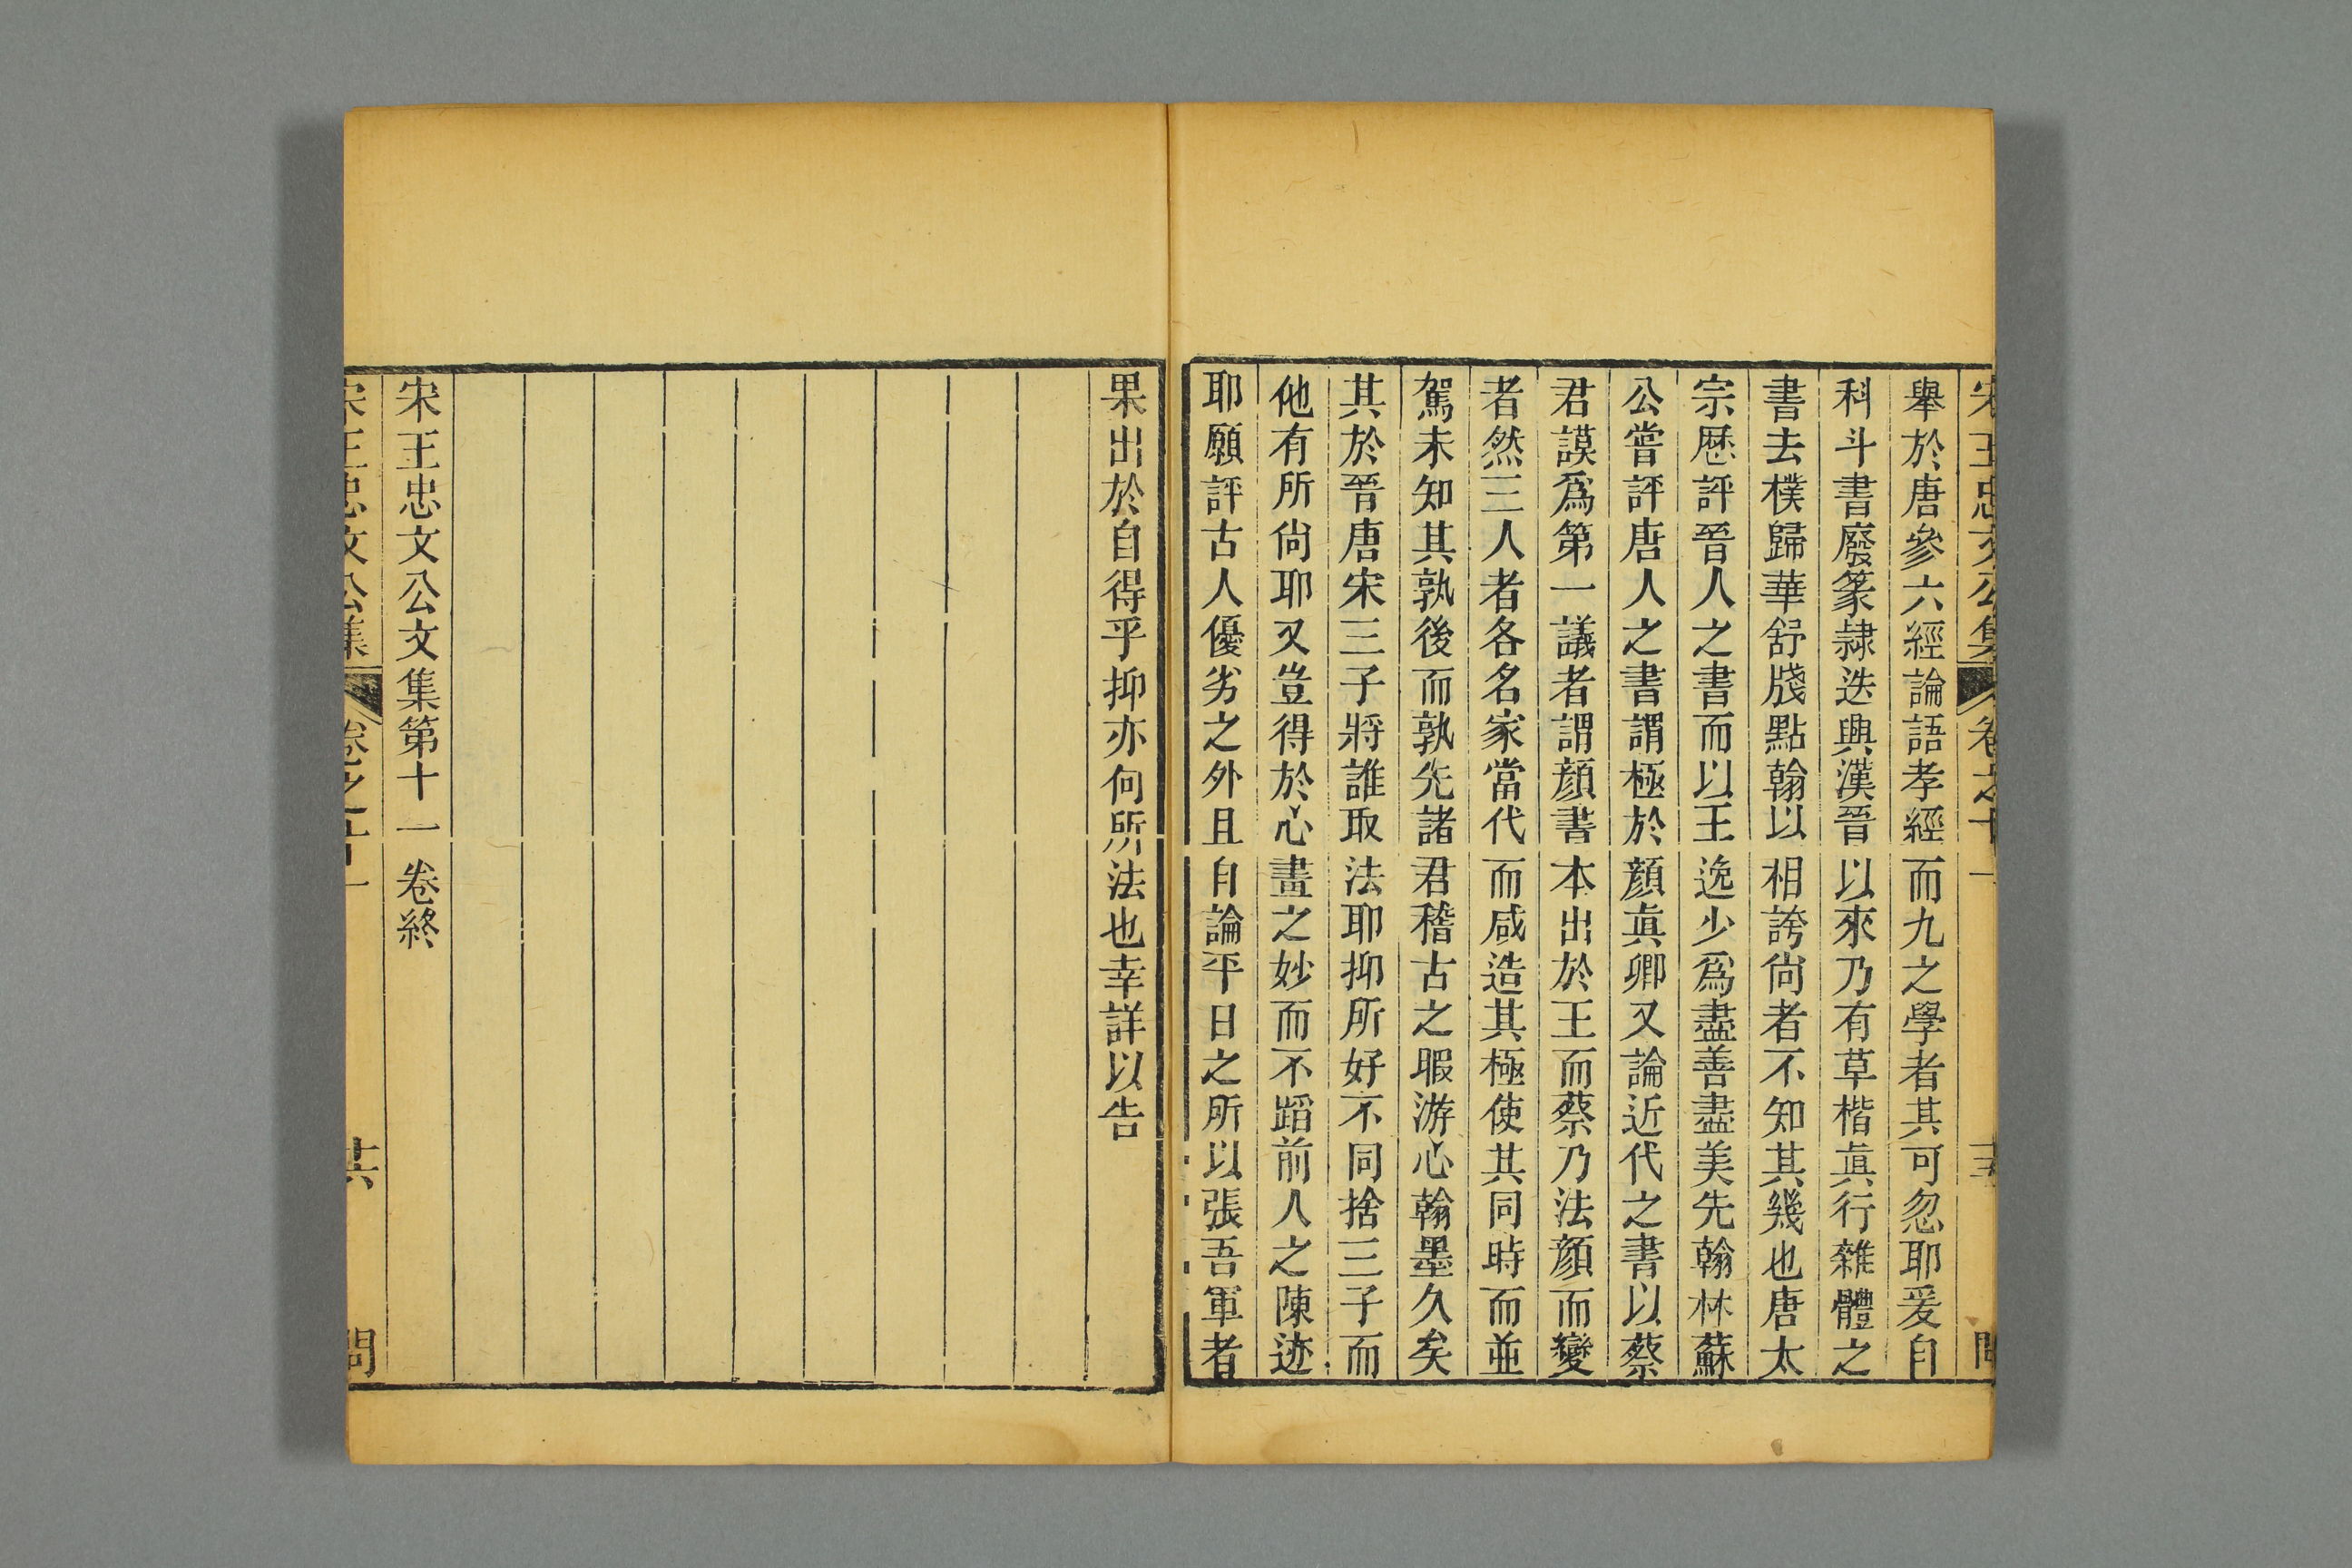 宋王忠文公集 卷之十一
舉於唐參六經論語孝經而九之學者其可忽耶爰自
科斗書廢篆隷迭興漢晉以來乃有草楷眞行雜體之
書去樸歸華舒牋點翰以相誇尙者不知其幾也唐太
宗歷評晉人之書而以王逸少爲盡善盡美先翰林蘇
公嘗評唐人之書謂極於顏眞卿又論近代之書以蔡
君謨爲第一議者謂顏書本出於王而蔡乃法顏而變
者然三人者各名家當代而咸造其極使其同時而並
駕未知其孰後而孰先諸君稽古之暇游心翰墨久矣
其於晉唐宋三子將誰取法耶抑所好不同捨三子而
他有所尙耶又豈得於心畫之妙而不蹈前人之陳迹
耶願評古人優劣之外且自論平日之所以張吾軍者
果出於自得乎抑亦何所法也幸詳以告
宋王忠文公文集第十一卷終
宋王忠文公集 卷之十一 共 問